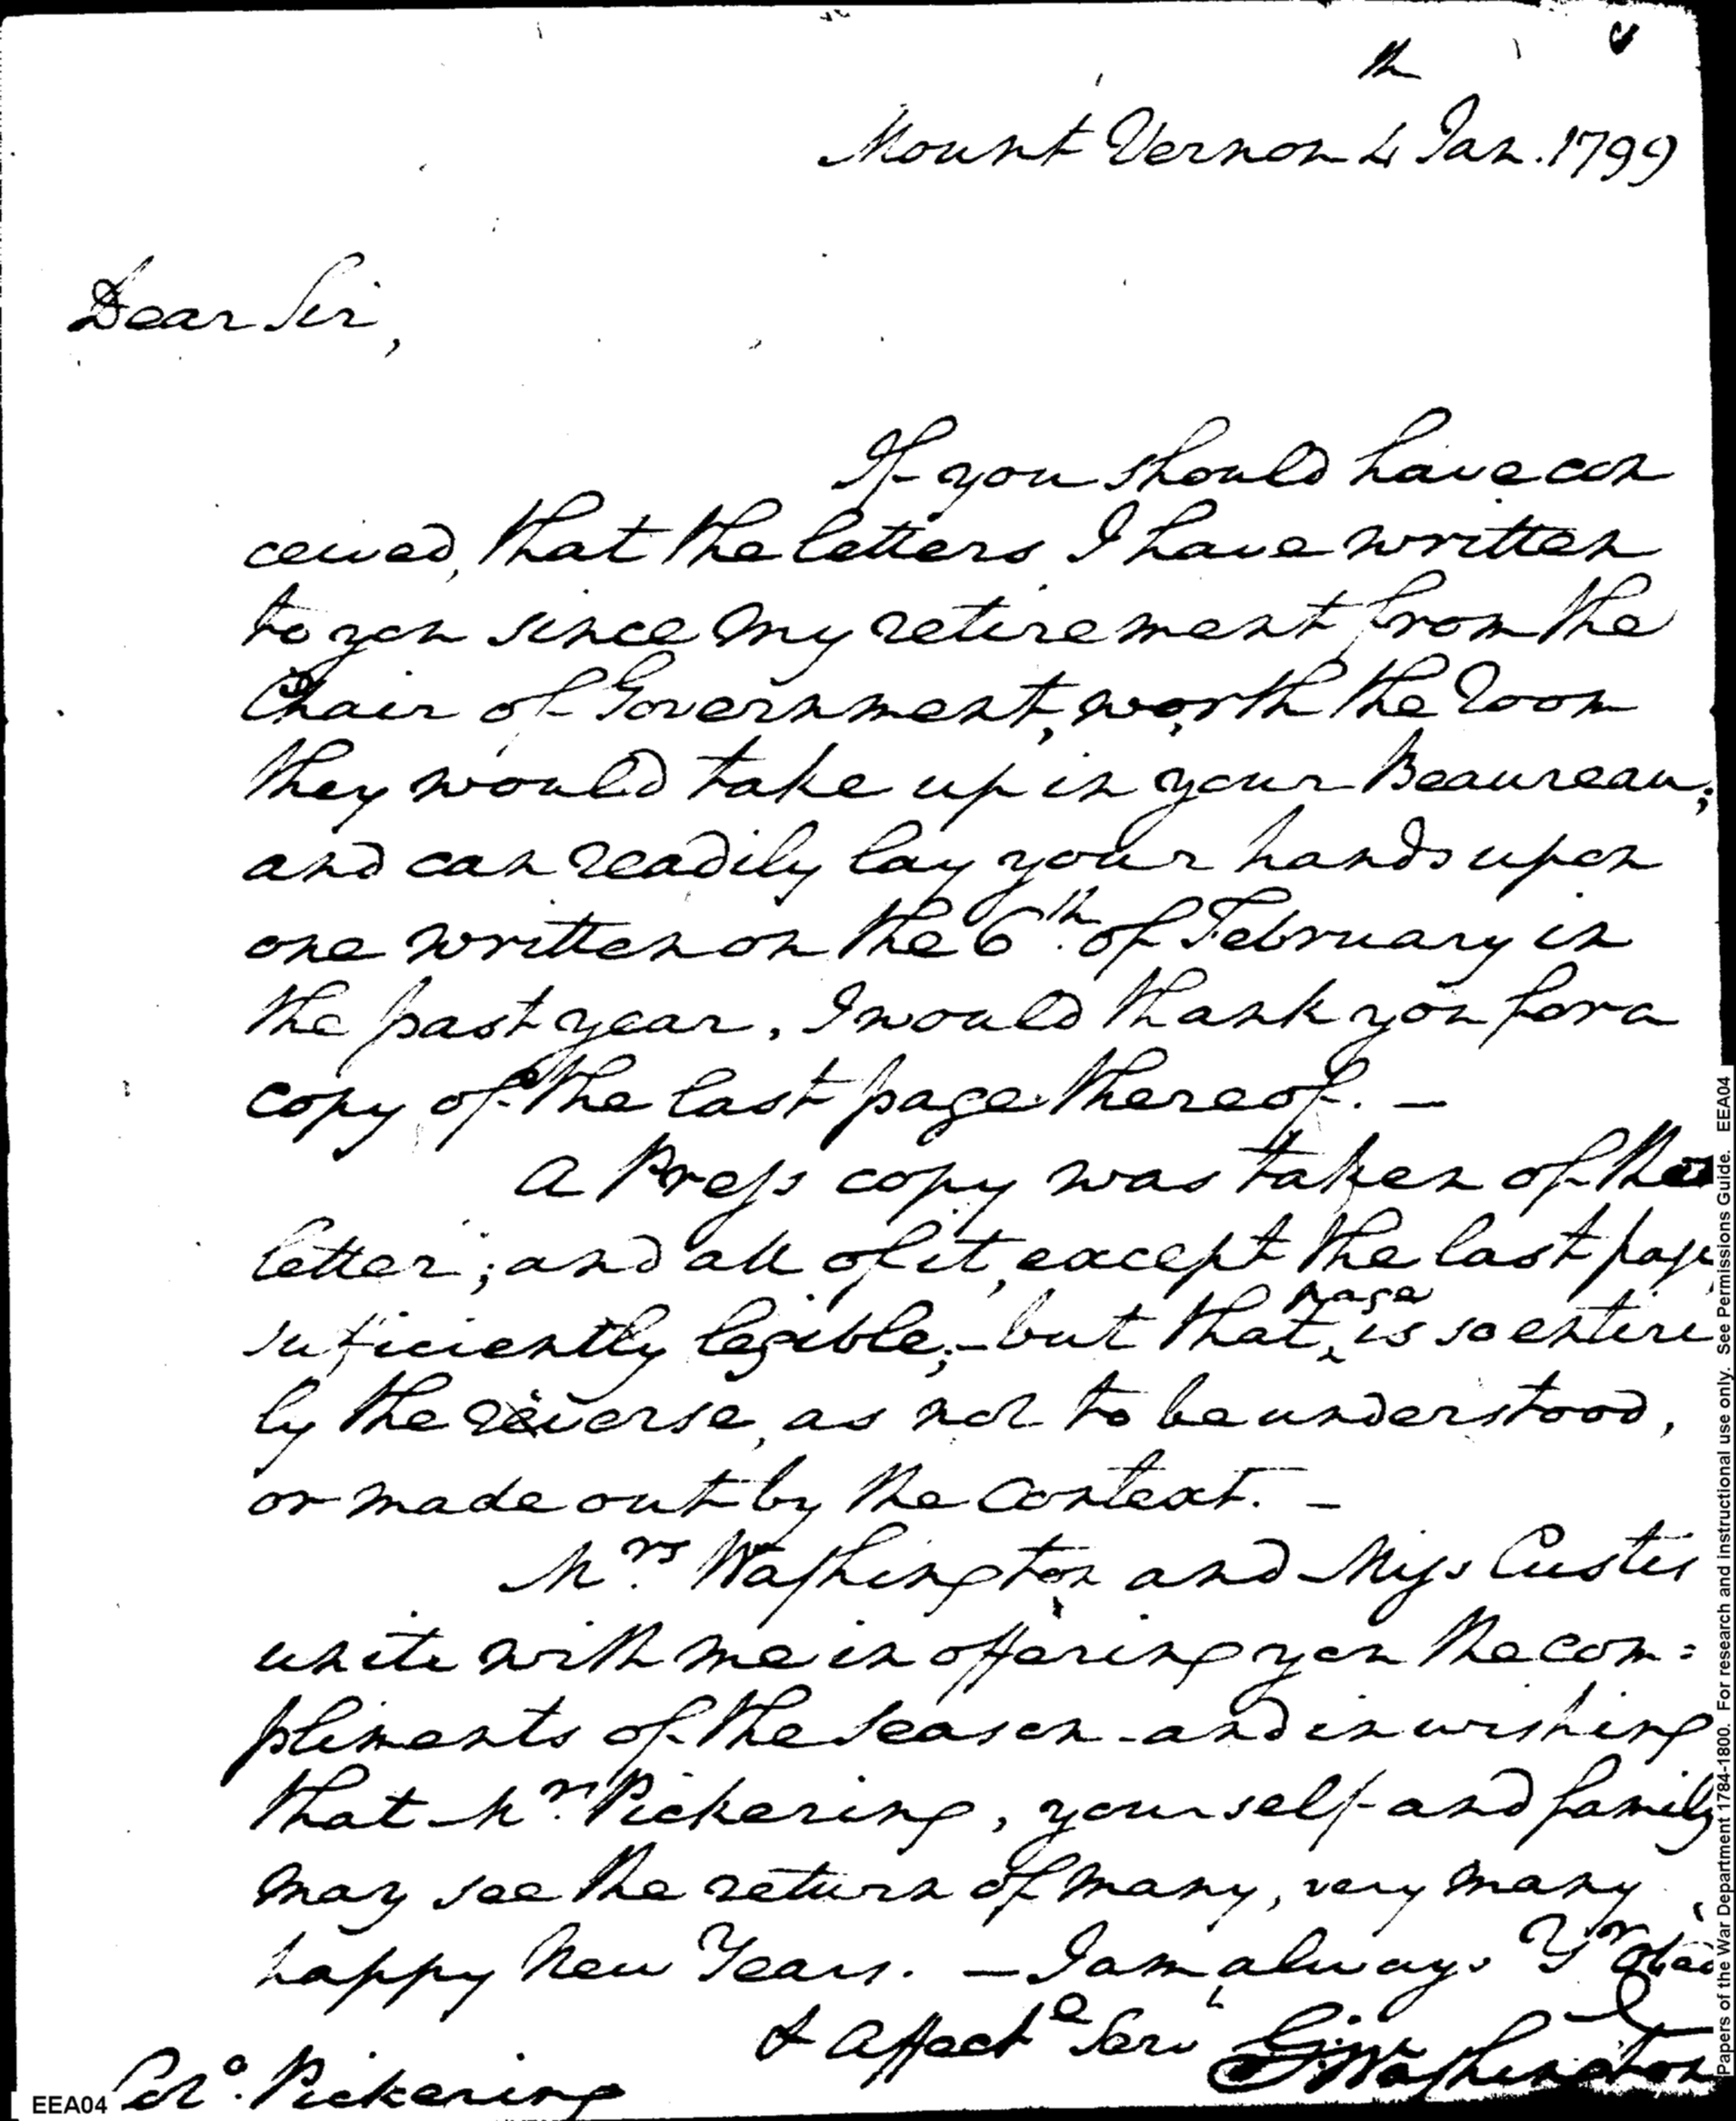 th
Mount Vernon 4 Jan. 1799
Dear Sir,
If you should have con
ceived, that the letters I have written
to you since my retirement from the
Chair of Government, worth the room
they would take up in your Beaureau;
and can readily lay your hands upon
one written on the 6th. of February in
the past year, I would thank you for a
copy of the last page thereof. —
A Press copy was taken of the
letter; and all of it, except the last page,
page
suficiently legible; – but that ‸ is so entire
ly the reverse, as not to be understood,
or made out by the context. —
Mrs. Washington and Miss Custis
unite with me in offering you the com=
pliments of the Season – and in wishing
that Mrs. Pickering, yourself and family
may see the return of many, very many
happy New Years. — I am always Yr. obed
& Affecte Serv
Go: Washington
Colo. Pickering
EEA04
Papers of the War Department 1784-1800. For research and instructional use only. See Permissions Guide. EEA04